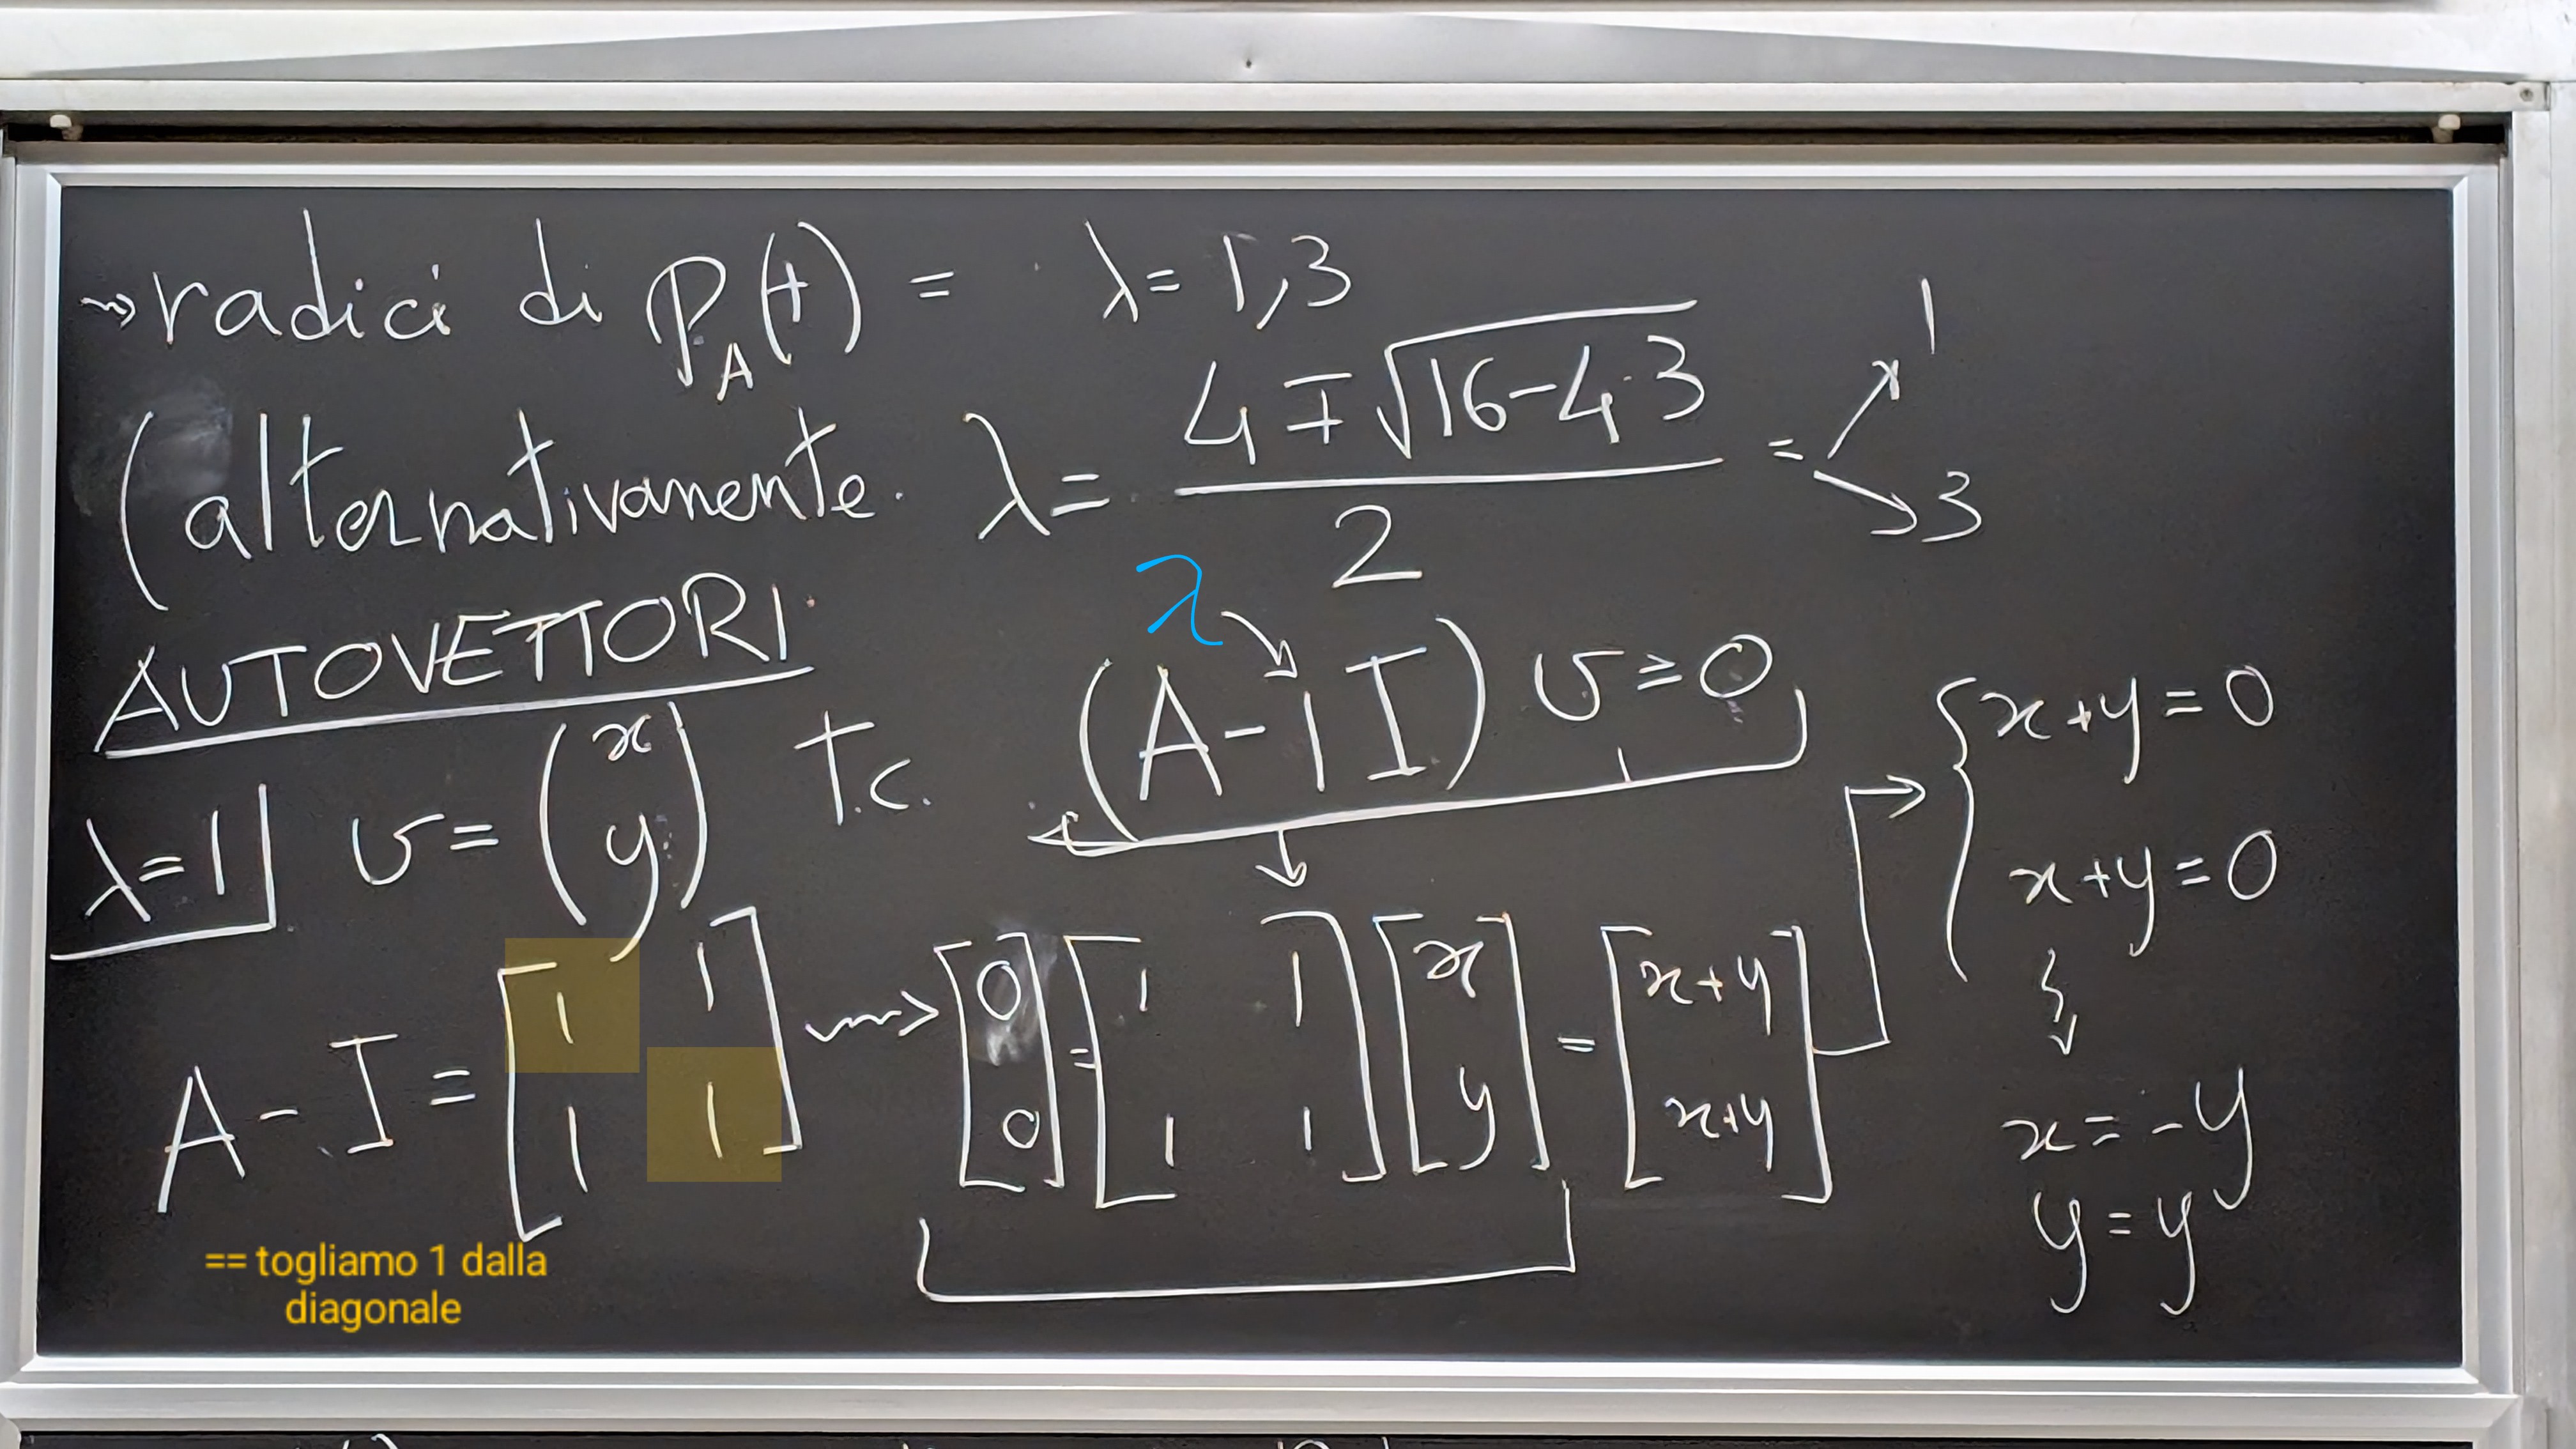 ⇝ radici di P_A(t) = λ = 1,3
(alternativamente λ = (4 ∓ √(16-4·3)) / 2 = ↗ 1 ↘ 3
AUTOVETTORI
λ
λ=1 v = (x y) t.c. (A - 1 I) v = 0
{ x+y=0
x+y=0
A - I = [1 1 1 1] ⇝ [0 0] = [1 1 1 1] [x y] = [x+y x+y]
x = -y
y = y
== togliamo 1 dalla
diagonale